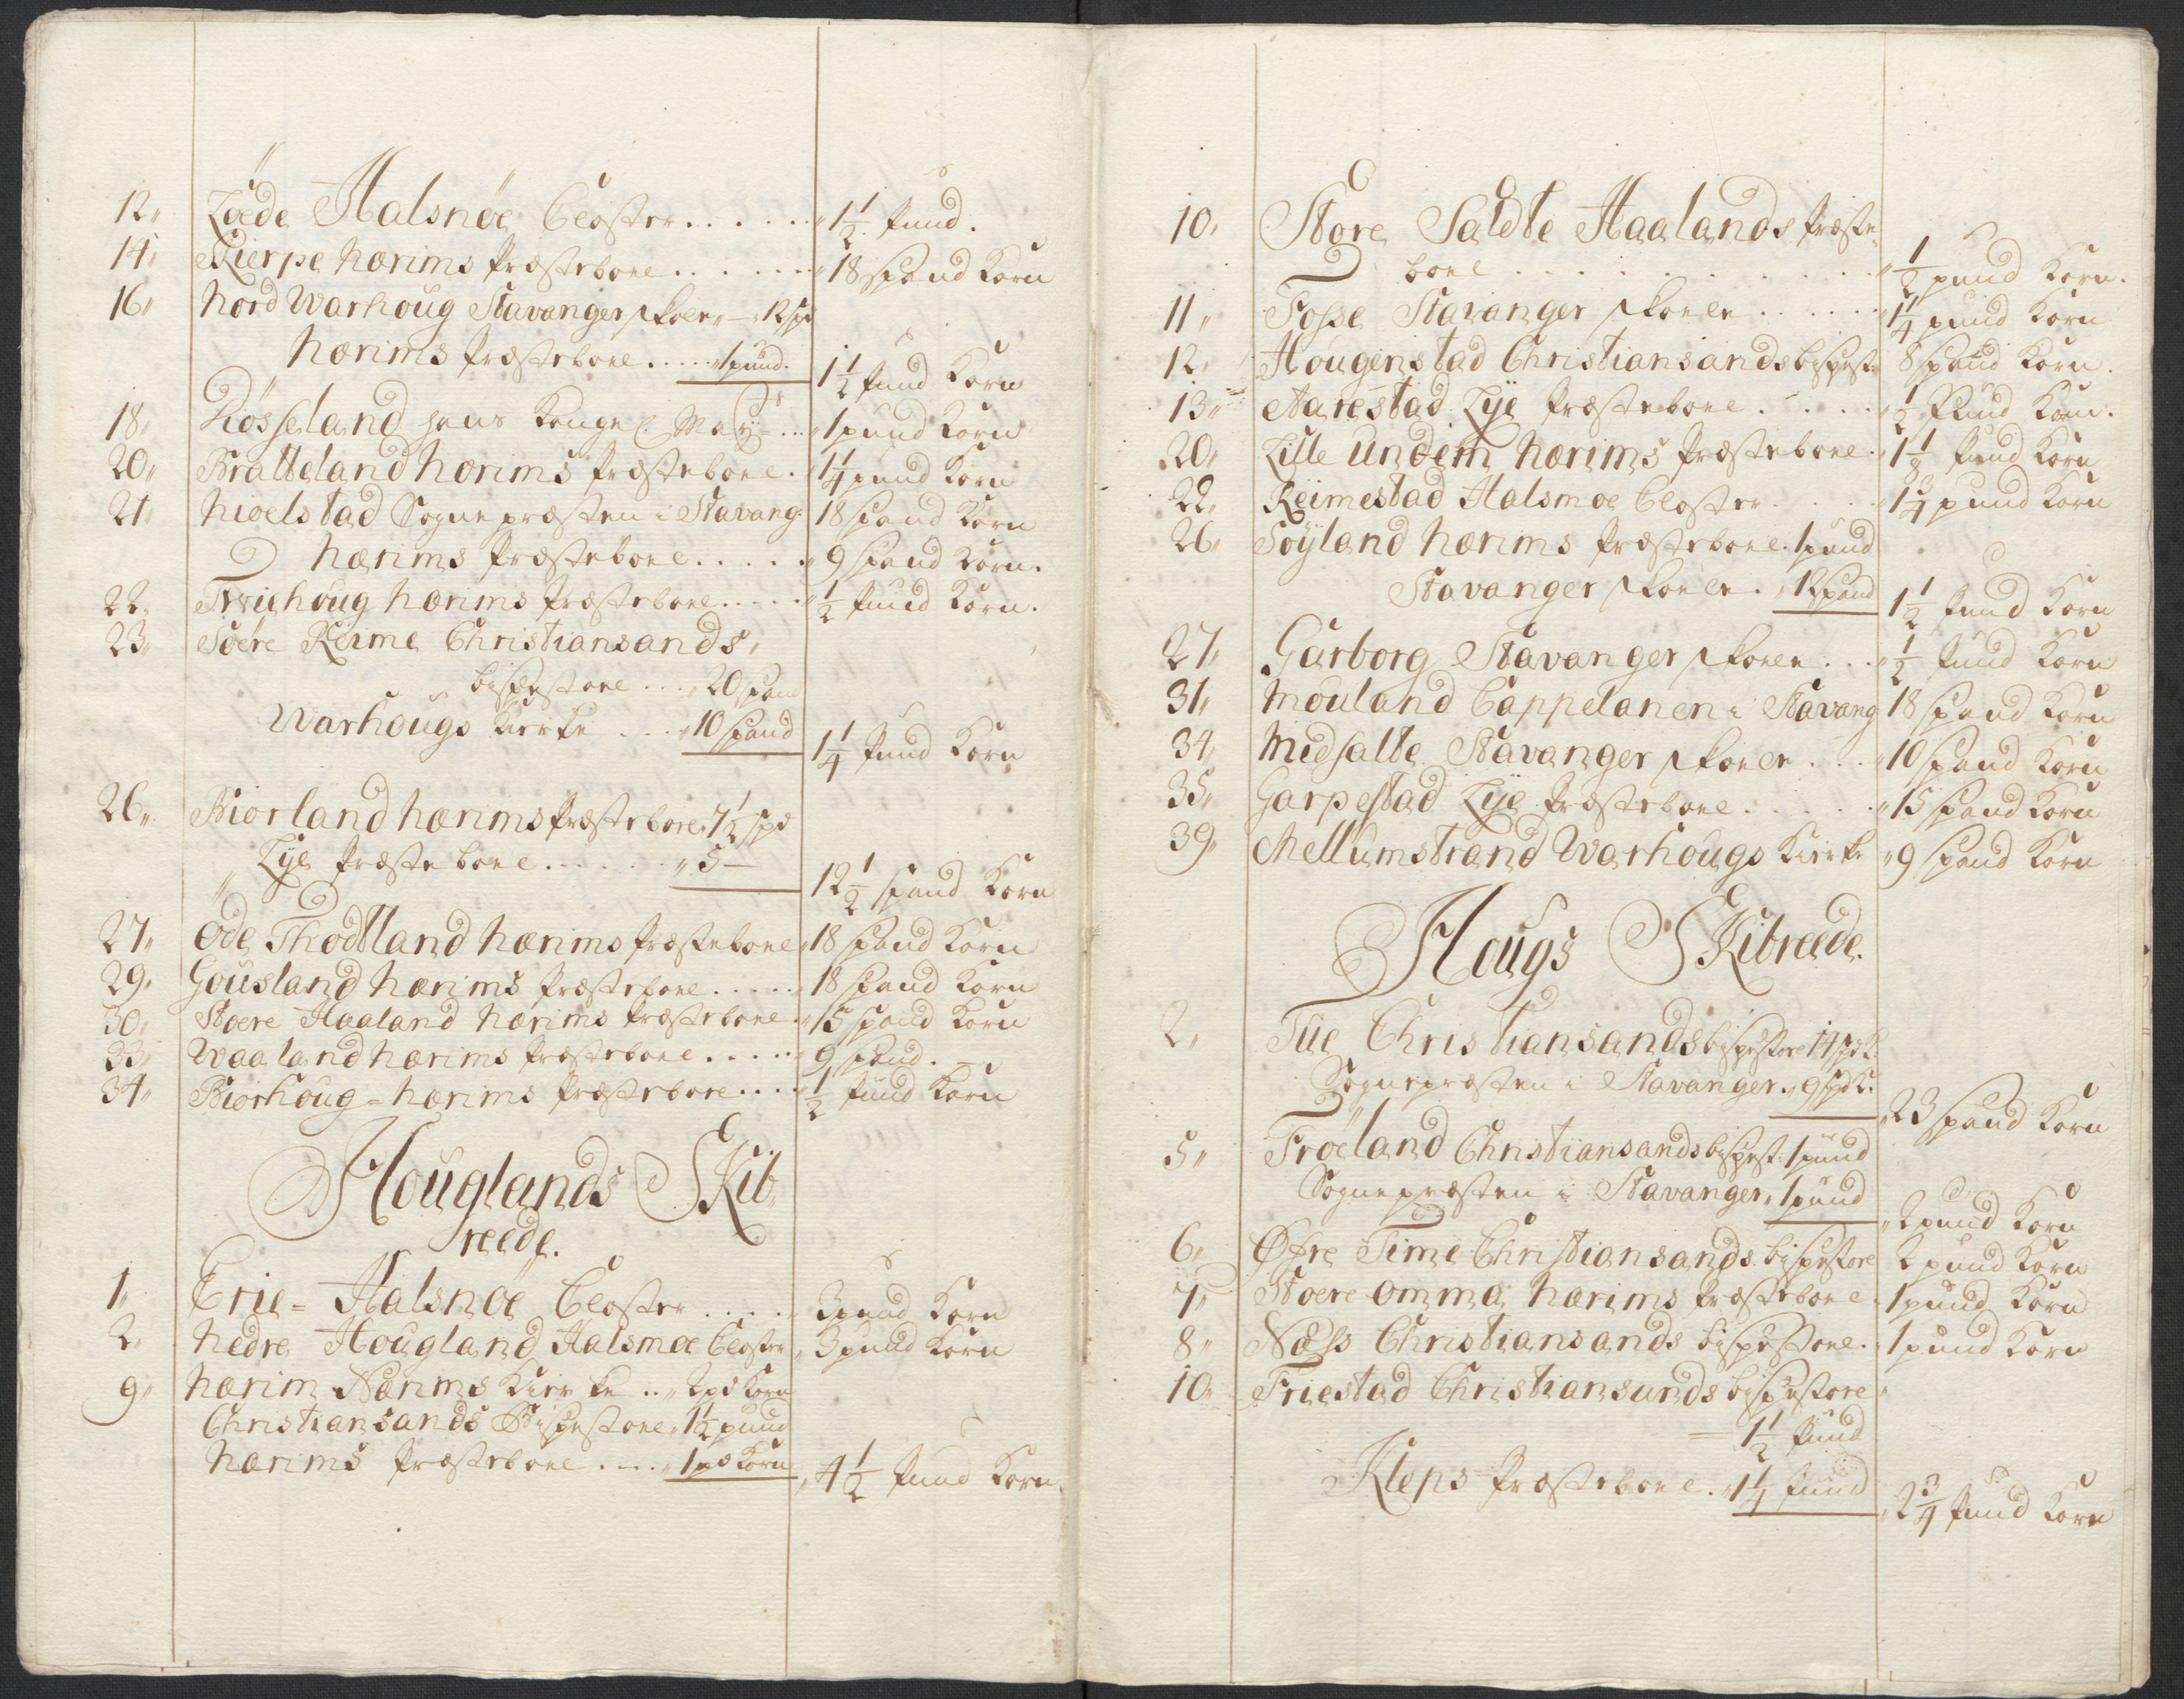 12. Löde Halsnöe Closter . . . . . 1 1/2 pund.
14. Kierpe Hærims Præstebore . . . . . 18 spand Korn
16. Nord Warhoug Stavanger skoele — 12 spd
Hærims Præstebore . . . . 1 pund. 1 1/2 pund Korn
18. Rösseland hans Kongel. Mayt . . . 1 pund Korn
20. Bratteland Hærims Præstebore . 1/4 pund Korn
21. Nioelstad Sognepræsten i Stavang. 18 spand Korn
Hærims Præstebore . . . . . 9 spand Korn.
22. Hærims Præstebore . . . . . 1/2 pund Korn.
23. Söere Reime Christiansands
bispestoel . . . 20 spand
Warhougs Kirke . . . 10 spand 1 1/4 pund Korn
26. Biorland Hærims Præstebore 7 1/2 spd
Lye Præstebore . . . . . 5 — 12 1/2 spand Korn
27. Öde Thodtland Hærims Præstebore 18 spand Korn
29. Gousland Hærims Præstebore . . . . . 18 spand Korn
30. Stoere Haaland Hærims Præstebore . 15 spand Korn
33. Waaland Hærims Præstebore . . . . . 9 spand. —
34. Biorhoug - Hærims Præstebore . . . . 1/2 pund Korn
Houglands SKib
reede.
1. Erie - Halsnöe Closter . . . . 3 pund Korn
2. Nedre Hougland Halsnöe Closter 3 pund Korn
9. Hærim Nærims Kirke . . 2 pd Korn
Christiansands Bispestoel 1 1/2 pund
Hærims Præstebore . . . . 1 pd Korn 4 1/2 pund Korn.
10. Store Saldte Haalands Præste-
bore . . . . . . . . . . 1/2 pund Korn.
11. Fosse Stavanger skoele . . . . . 1/4 pund Korn
12. Hougenstad Christiansands bispest. 8 spand Korn.
13. Aarestad Lye Præstebore . . . . . 1/2 Pund Korn.
20. Lille Undem Hærims Præstebore . 1 1/8 pund Korn
22. Reimestad Halsmöe Closter . . . . 1 3/4 pund Korn
26. Söyland Hærims Præstebore . 1 pund
Stavanger skoele . 12 spand 1 1/2 pund Korn
27. Garborg Stavanger skoele . . . 1/2 pund Korn
31. Mouland Cappelanen i Stavang 18 spand Korn
34. Midsalte Stavanger skoele . . . 10 spand Korn
35. Garpestad Lye Præstebore . . . . . 15 spand Korn
39. Mellumstrand Warhougs Kirke 9 spand Korn
Hougs SKibreede.
2. Tue Christiansands bispestoel 14 spd K.
Sognepræsten i Stavanger . 9 spd K. 23 spand Korn
5. Fröeland Christiansands bispest. 1 pund
Sognepræsten i Stavanger . 1 pund 2 pund Korn
6. Øfre Time Christiansands bispestoel 2 pund Korn
7. Stoere Omma Hærims Præstebore . 1 pund Korn
8. Næss Christiansands bispestoel . 1 pund Korn
10. Friestad Christiansands bispestoel
— 1 1/2 pund
Kleps Præstebore . 1 1/4 pund 2 3/4 pund Korn